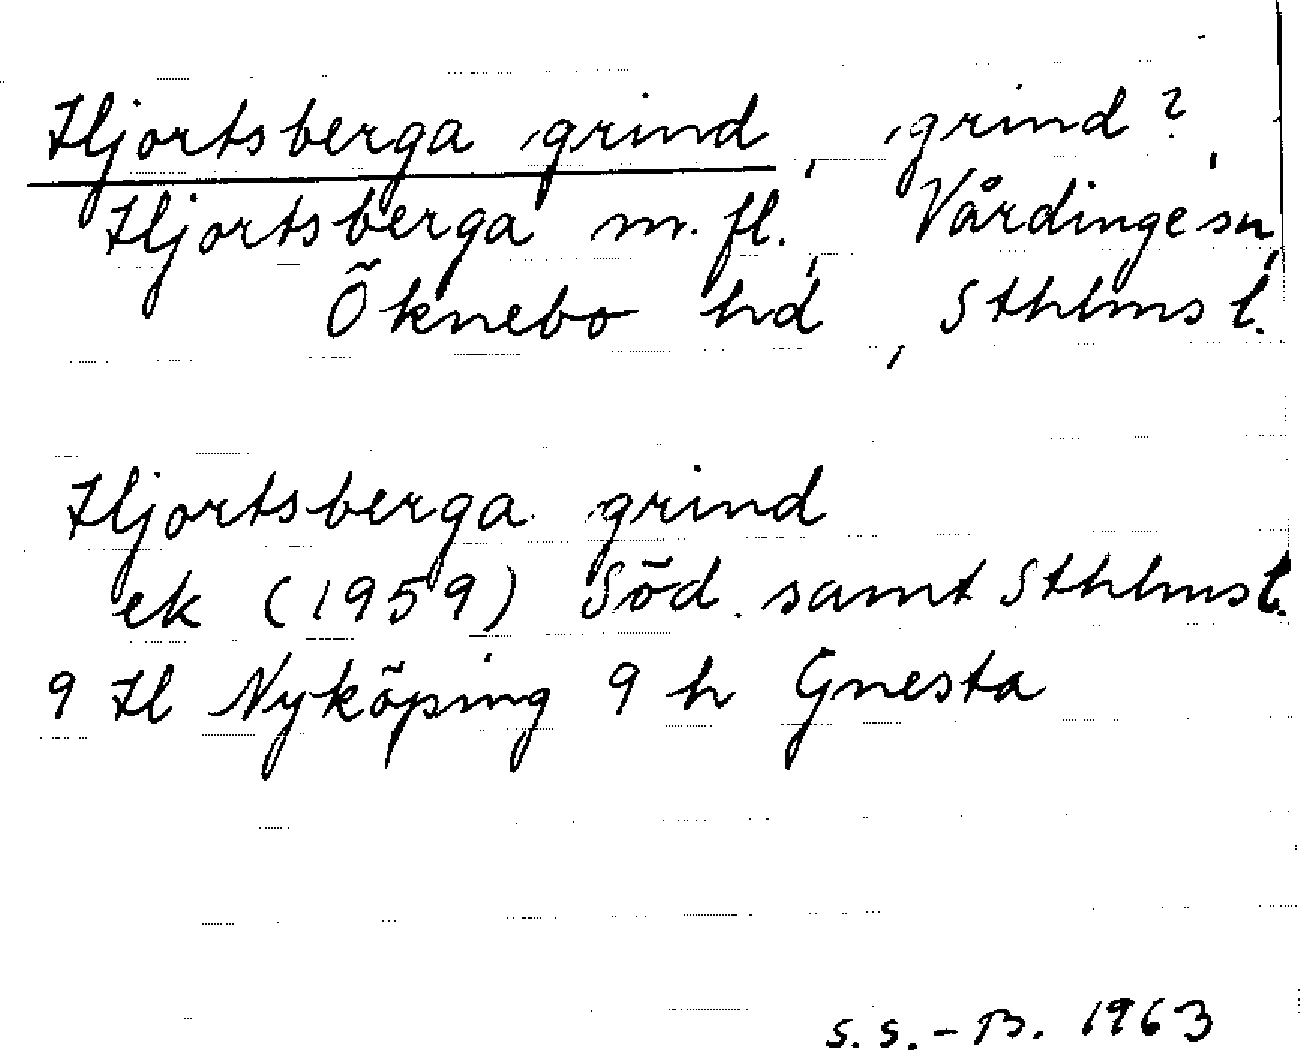 Hjortsberga grind, grind?,
Hjortsberga m. fl., Vårdinge sn,
Öknebo hd, Sthlms l.
Hjortsberga grind
ek (1959) Söd. samt Sthlms l.
9 H Nyköping 9 h Gnesta
S. S. - B. 1963